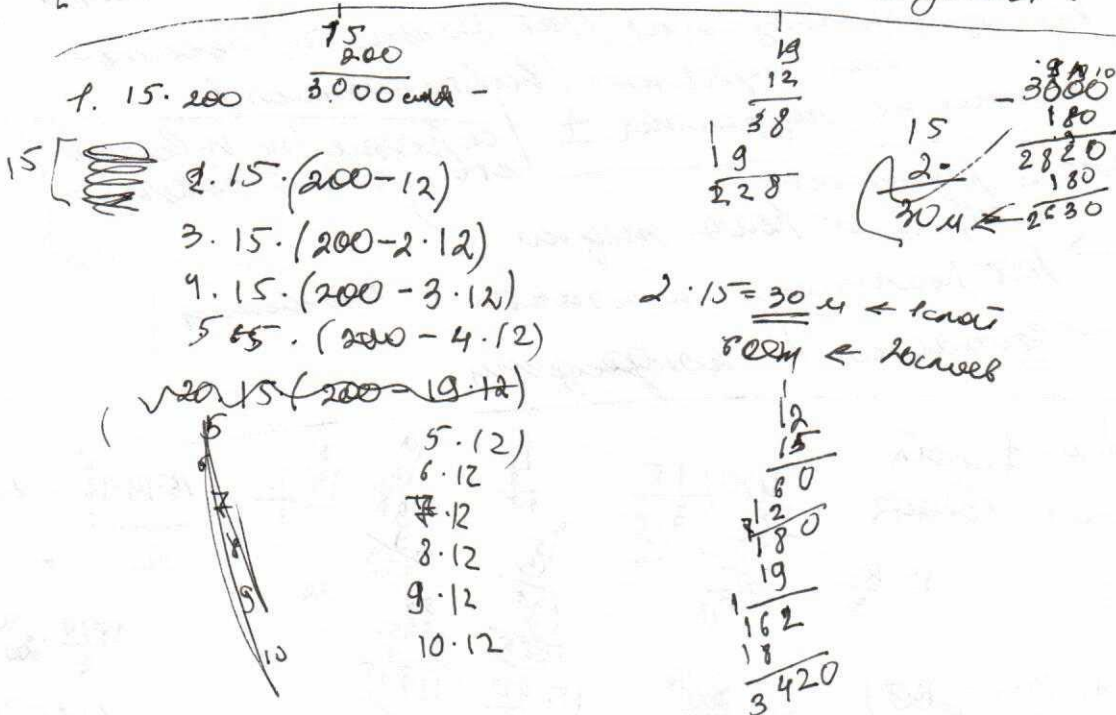 15
200
3.000
1. 15 · 200
15
2. 15 · (200 - 12)
3. 15 · (200 - 2 · 12)
4. 15 · (200 - 3 · 12)
5 15 · (200 - 4 · 12)
20. 15 (200 - 19 · 12)
5 · 12)
6 · 12
7 · 12
8 · 12
9 · 12
10 · 12
5
6
7
8
9
10
19
12
38
19
228
15
2
30 м ←
- 3000
180
2820
180
2630
2 · 15 = 30 м ← 1 слой
← 20 слоев
12
15
60
12
180
19
162
18
3420